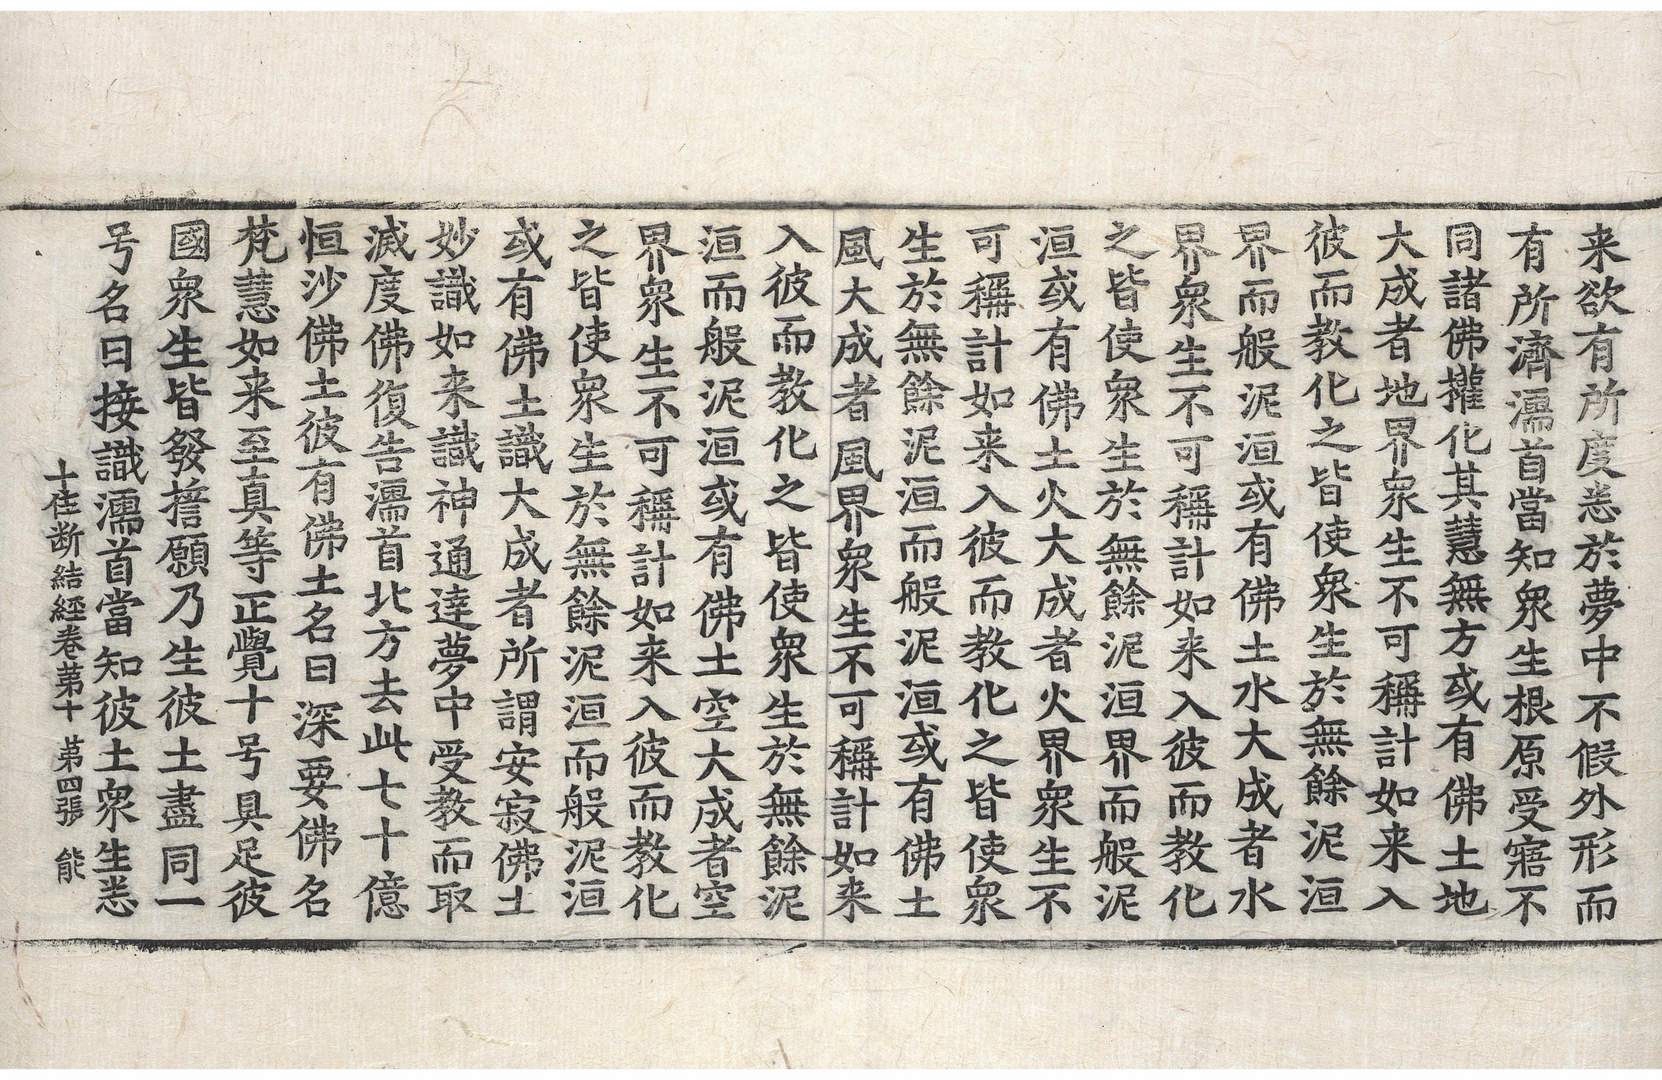 来欲有所度悉於夢中不假外形而
有所濟濡首當知衆生根原受寤不
同諸佛權化其慧無方或有佛土地
大成者地界衆生不可稱計如来入
彼而教化之皆使衆生於無餘泥洹
界而般泥洹或有佛土水大成者水
界衆生不可稱計如来入彼而教化
之皆使衆生於無餘泥洹界而般泥
洹或有佛土火大成者火界衆生不
可稱計如来入彼而教化之皆使衆
生於無餘泥洹而般泥洹或有佛土
風大成者風界衆生不可稱計如来
入彼而教化之皆使衆生於無餘泥
洹而般泥洹或有佛土空大成者空
界衆生不可稱計如来入彼而教化
之皆使衆生於無餘泥洹而般泥洹
或有佛土識大成者所謂安寂佛土
妙識如来識神通達夢中受教而取
滅度佛復告濡首北方去此七十億
恒沙佛土彼有佛土名曰深要佛名
梵慧如来至真等正覺十号具足彼
國衆生皆發誓願乃生彼土盡同一
号名曰接識濡首當知彼土衆生悉
十住断結經卷第十 第四張 能